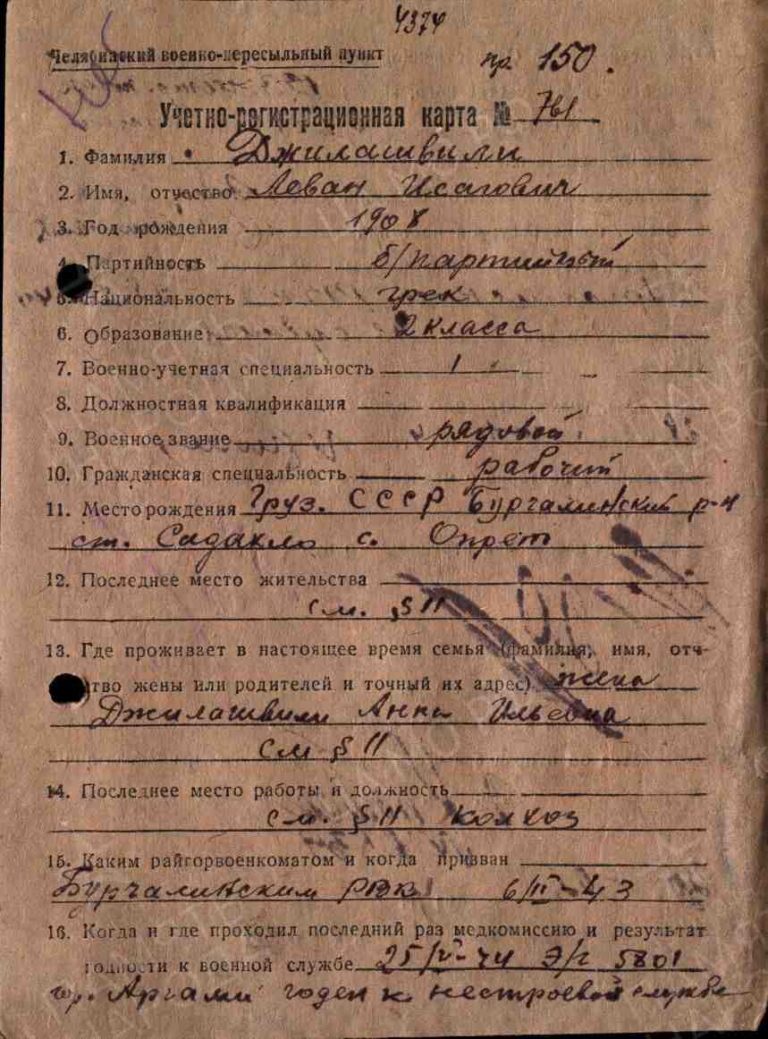 4374
Челябинский военно-пересыльный пункт
пр 150.
Учетно-регистрационная карта № 761
1. Фамилия Джилашвили
2. Имя, отчество Леван Исагович
3. Год рождения 1908
4. Партийность б/партийный
5. Национальность грек
6. Образование 2 класса
7. Военно-учетная специальность 1
8. Должностная квалификация
9. Военное звание рядовой
10. Гражданская специальность рабочий
11. Место рождения Груз. СССР Бургалинский р-н
ст. Садакло с. Опрет
12. Последнее место жительства
см. § 11
13. Где проживает в настоящее время семья (фамилия, имя, отч-
тво жены или родителей и точный их адрес) жена
Джилашвили Анна Ильевна
см § 11
14. Последнее место работы и должность
см. § 11 колхоз
15. Каким райгорвоенкоматом и когда призван
Бурчалинским РВК 6/II-43
16. Когда и где проходил последний раз медкомиссию и результат
годности к военной службе 25/V-44 Э/г 5801
гор. годен к нестроевой службе